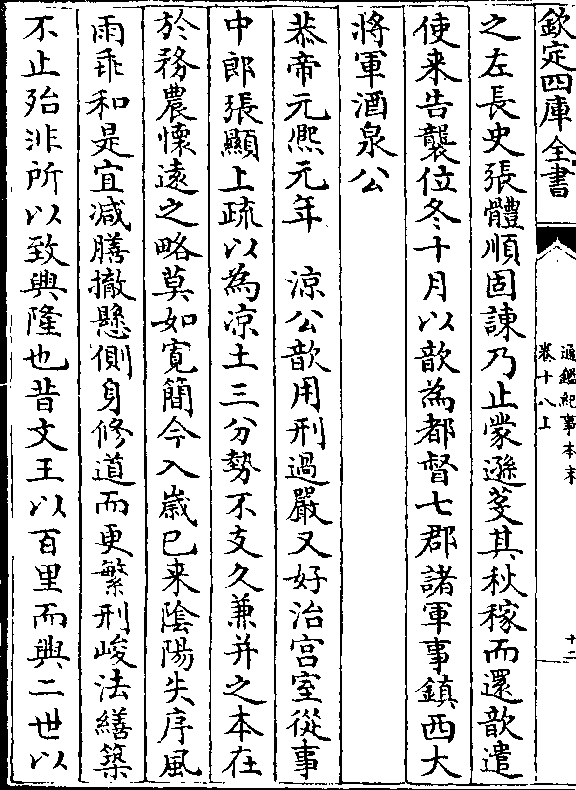 欽定四庫全書
通鑑紀事本末
卷十八上
十二
之左長史張體順固諫乃止蒙遜芟其秋稼而還歆遣
使来告襲位冬十月以歆為都督七郡諸軍事鎮西大
將軍酒泉公
恭帝元熈元年　涼公歆用刑過嚴又好治宫室從事
中郎張顯上疏以為凉土三分勢不支久兼并之本在
於務農懷遠之略莫如寛簡今入歲已来陰陽失序風
雨乖和是宜减膳撤懸側身修道而更繁刑峻法繕築
不止殆非所以致興隆也昔文王以百里而興二世以